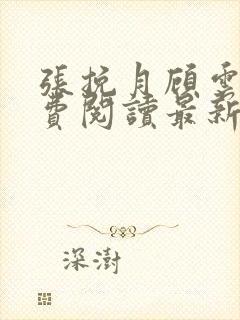 張挽月顧雲
費閱讀最新
深澍